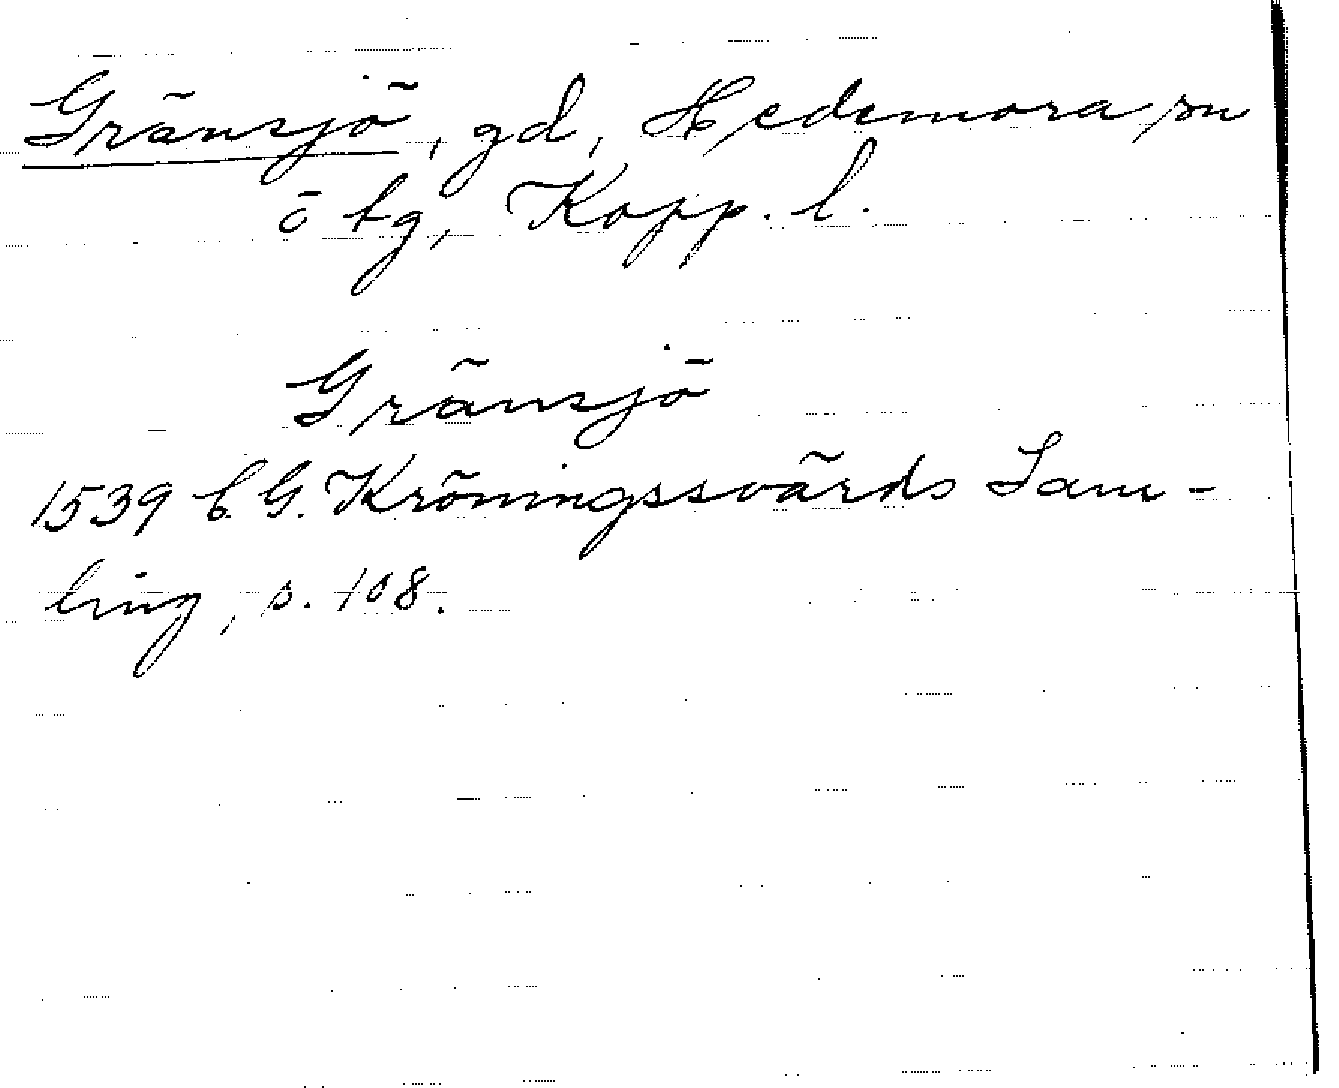 Gränsjö, gd, Hedemora sn
ö tg, Kopp. l.
Gränsjö
1539 C. G. Kröningssvärds Sam-
ling, s. 108.